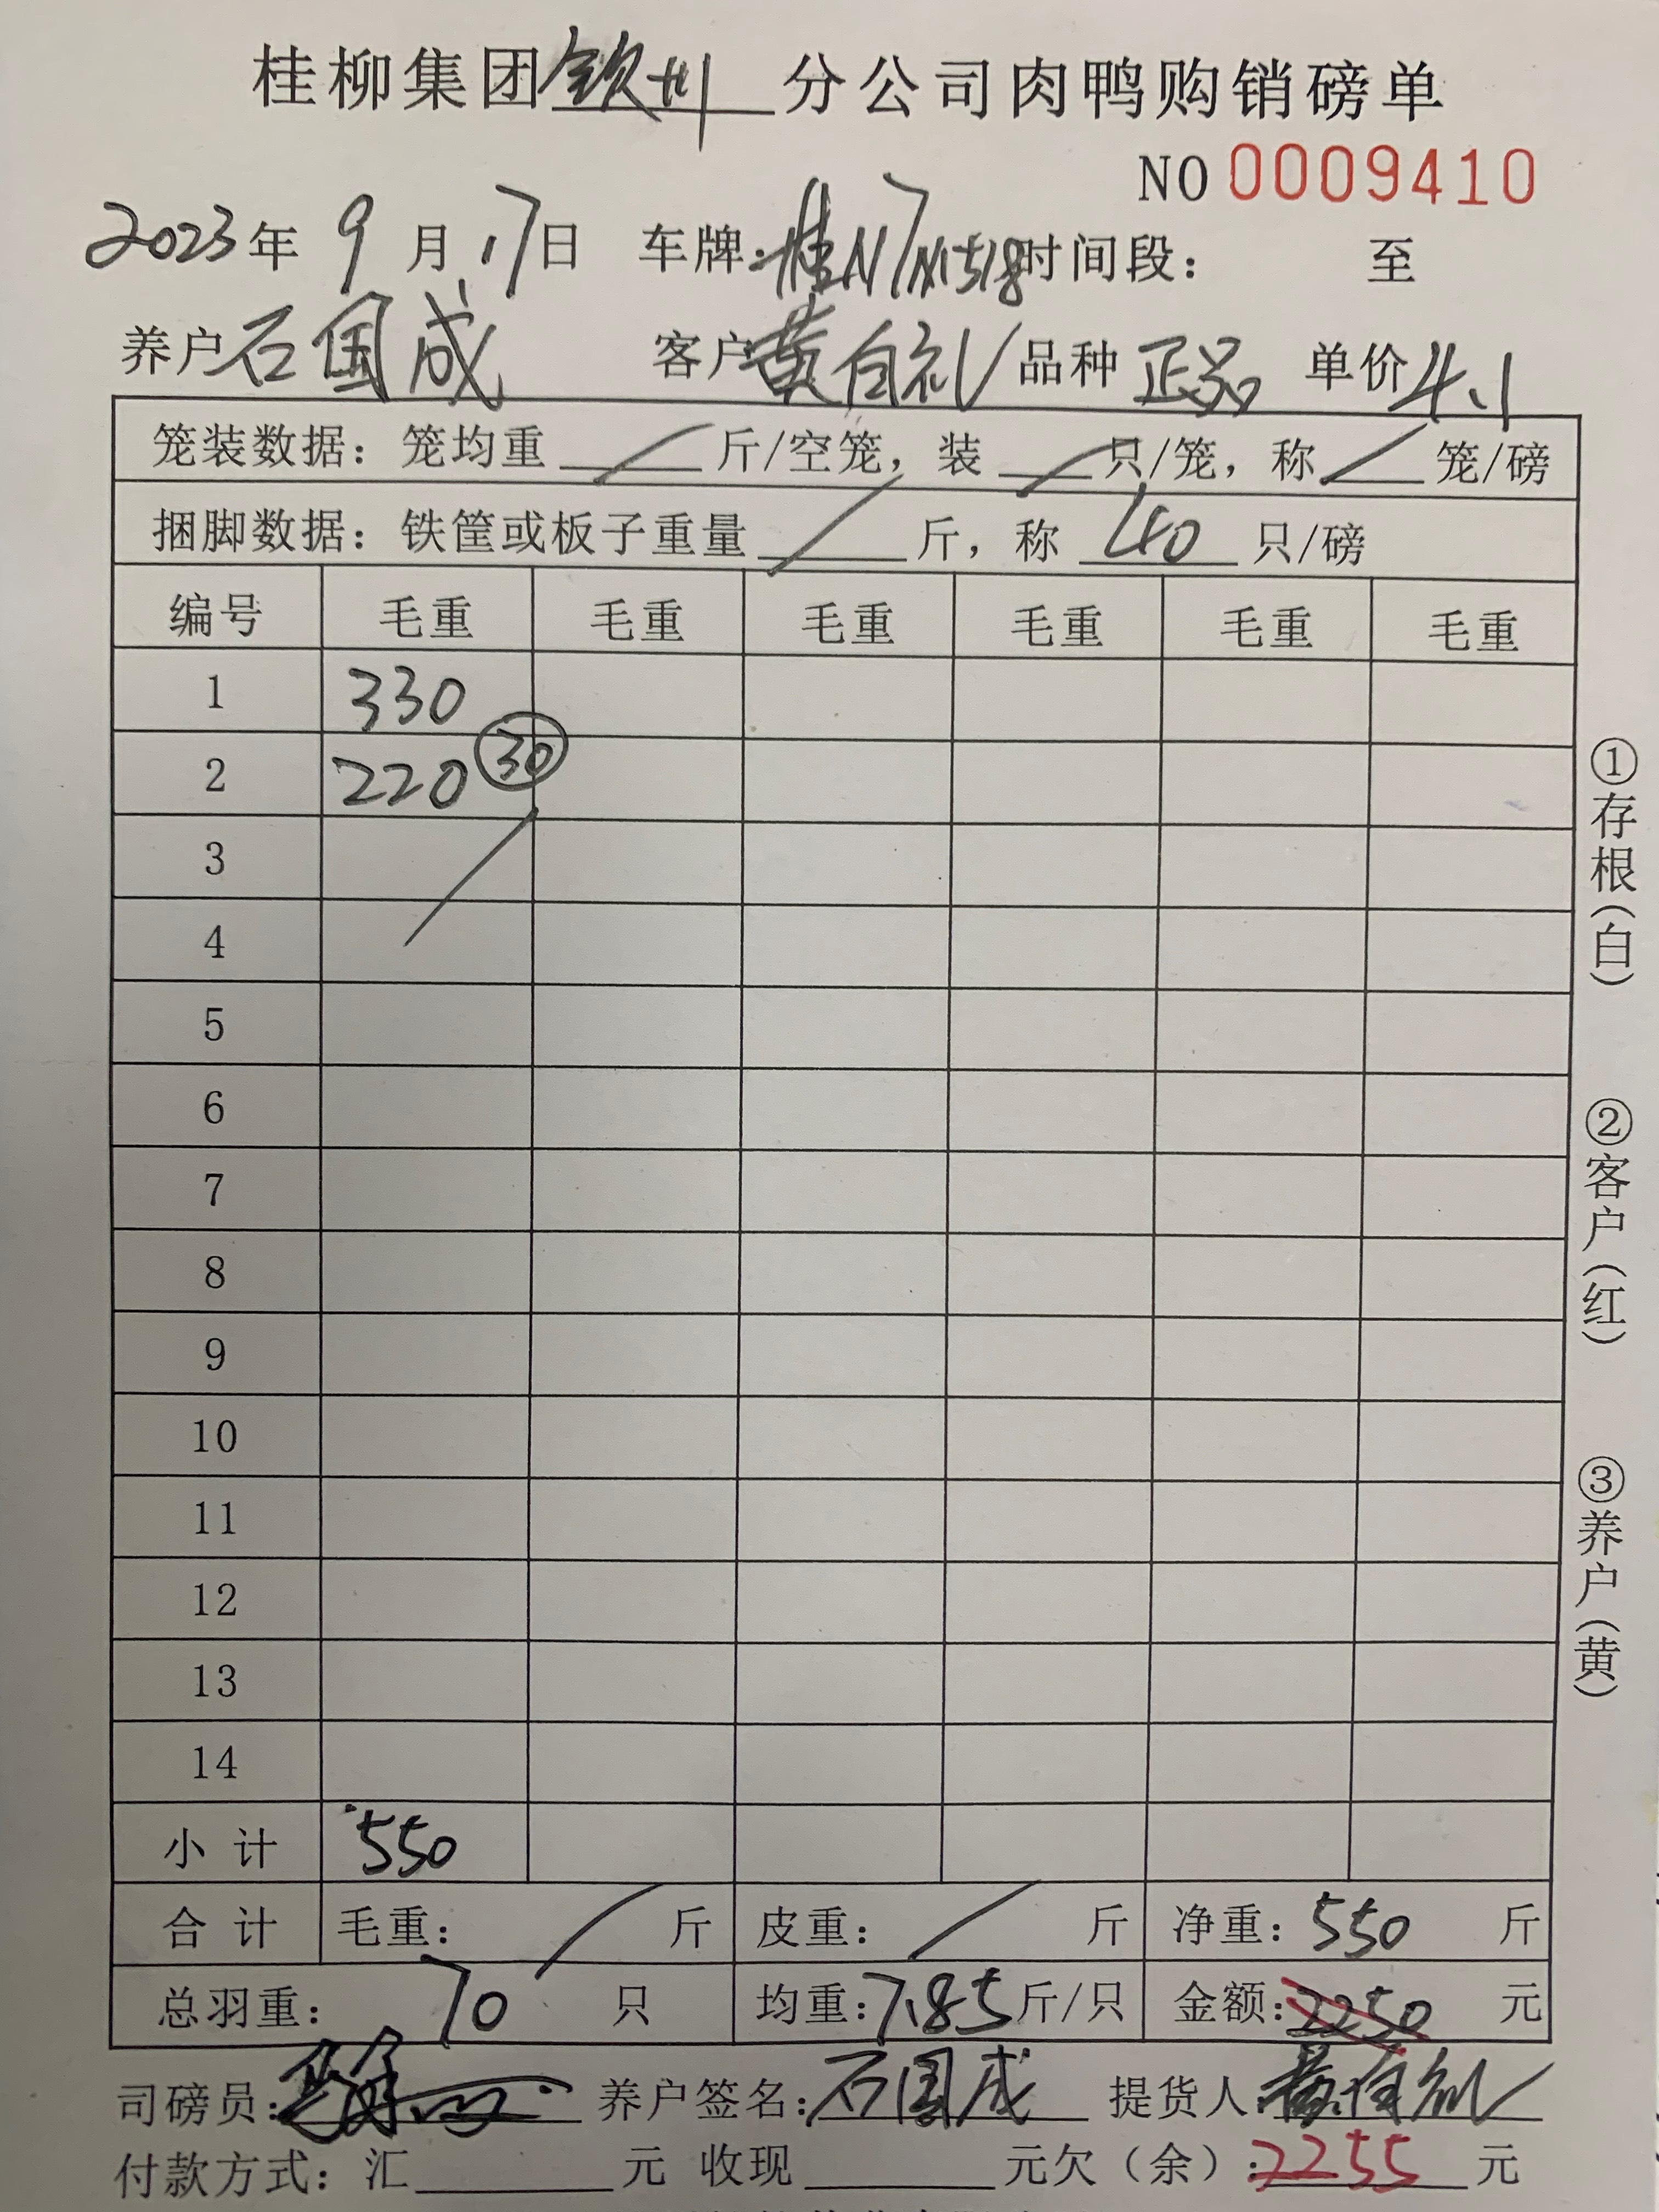 桂柳集团钦州分公司肉鸭购销磅单
NO 0009410
2023年 9月 17日 车牌:桂N 时间段: 至
养户 石国成 客户 黄自礼 品种 正品 单价 4.1
笼装数据: 笼均重 / 斤/空笼, 装 / 只/笼, 称 / 笼/磅
捆脚数据: 铁筐或板子重量 / 斤, 称 40 只/磅
编号 毛重 毛重 毛重 毛重 毛重 毛重
1 330
2 220 30
3
4
5
6
7
8
9
10
11
12
13
14
小计 550
合计 毛重: / 斤 皮重: / 斤 净重: 550 斤
总羽重: 70 只 均重: 7.85 斤/只 金额: 2250 元
司磅员: 养户签名: 石国成 提货人: 黄自礼
付款方式: 汇 元 收现 元欠(余): 2255 元
①存根(白)
②客户(红)
③养户(黄)